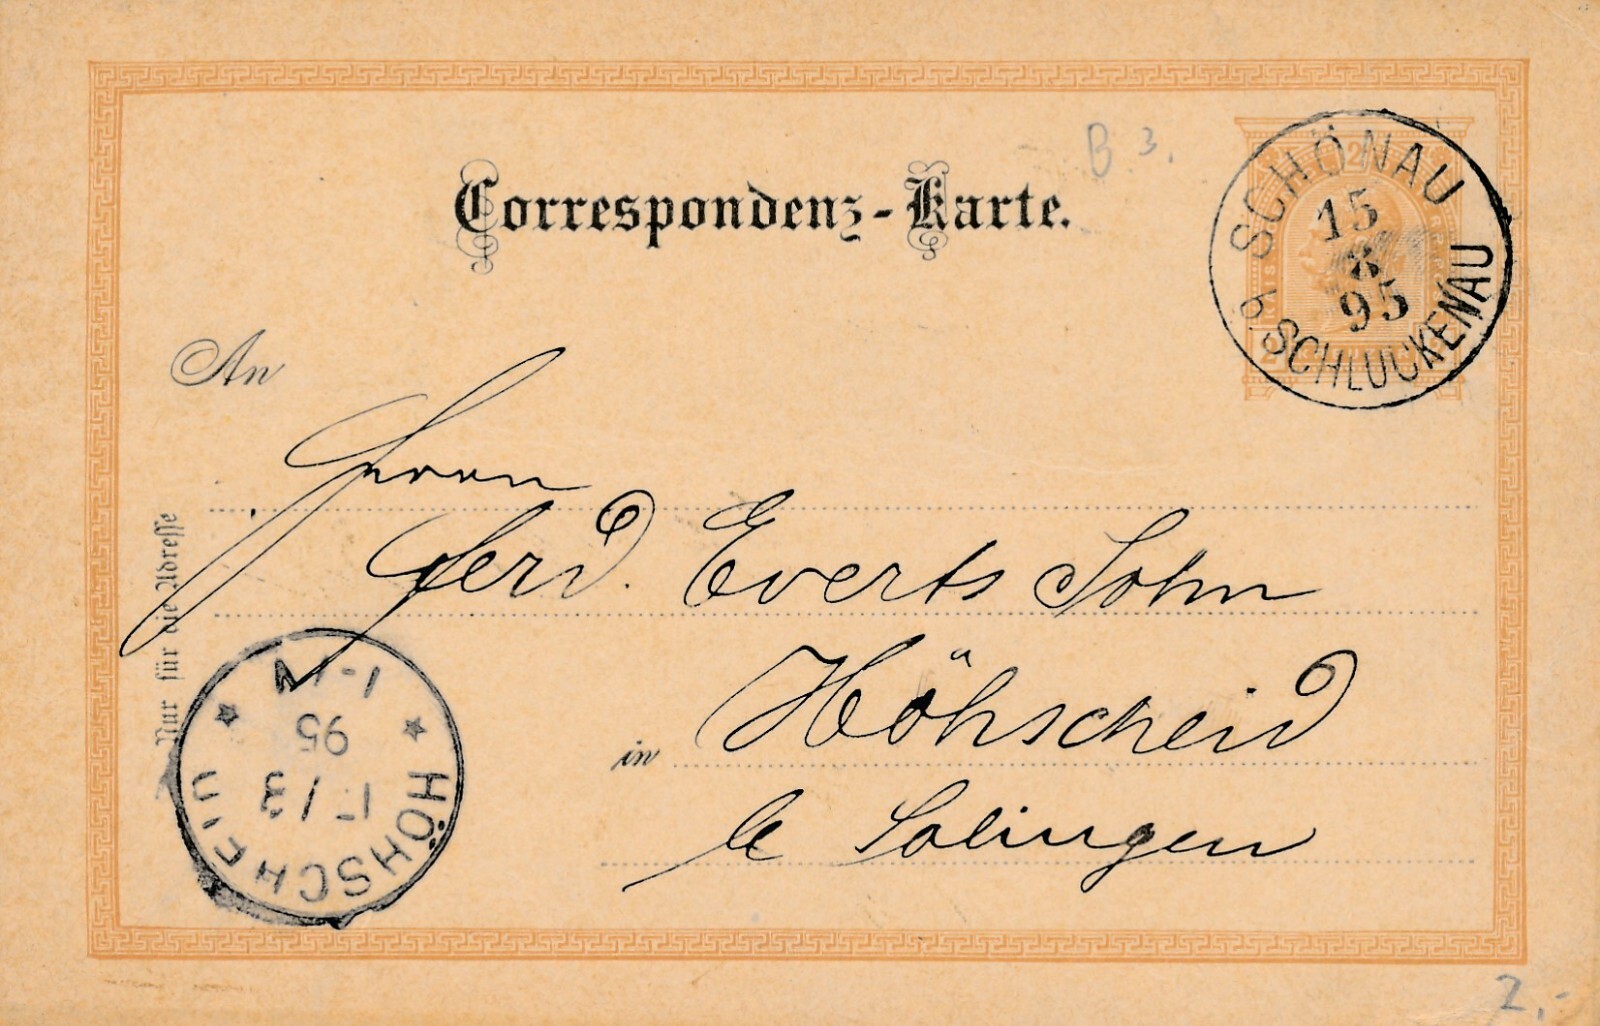 B 3.
Correspondenz-Karte.
2
SCHÖNAU
15
95
b. SCHLUCKENAU
An
Herrn
Ferd. Everts Sohn
in Höhscheid
b/ Solingen
Nur für die Adresse
HÖHSCHEID
95
1-1N
2,-